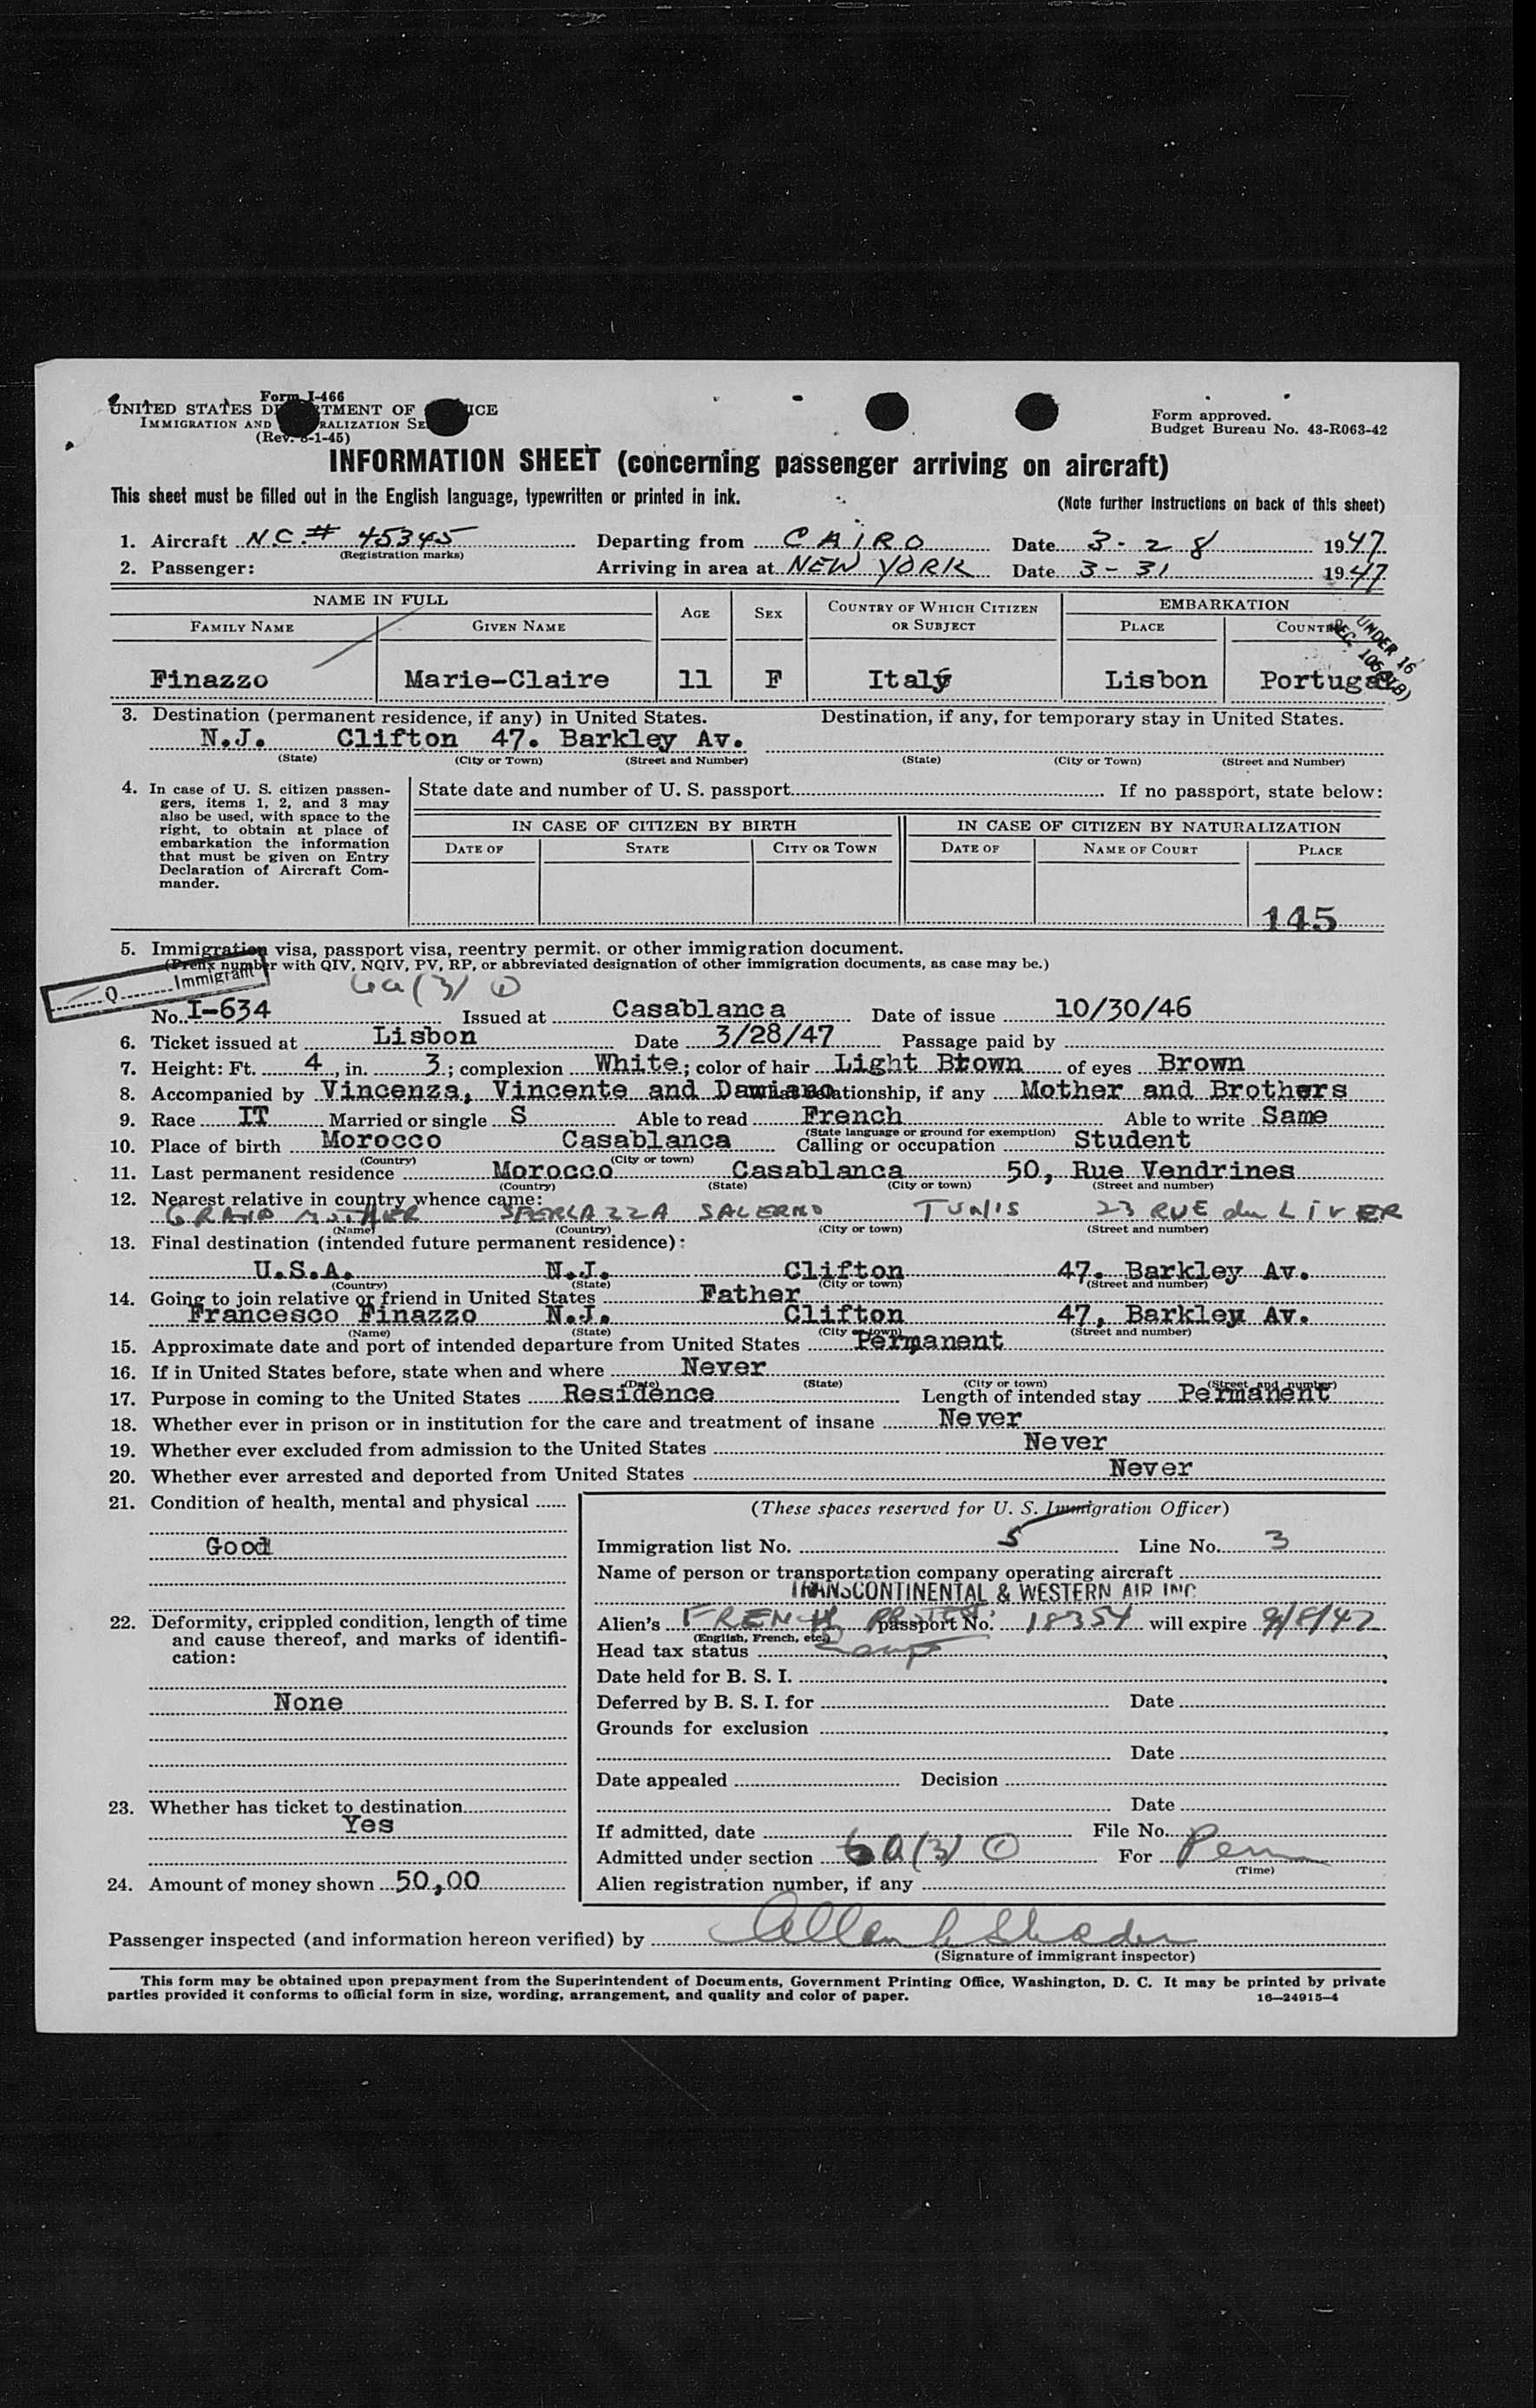 Form I-466
UNITED STATES DEPARTMENT OF JUSTICE
IMMIGRATION AND NATURALIZATION SERVICE
(Rev. 8-1-45)
Form approved.
Budget Bureau No. 43-R063-42
INFORMATION SHEET (concerning passenger arriving on aircraft)
This sheet must be filled out in the English language, typewritten or printed in ink. (Note further instructions on back of this sheet)
1. Aircraft N.C.# 45345 Departing from CAIRO Date 3-28 1947
(Registration marks)
2. Passenger: Arriving in area at NEW YORK Date 3-31 1947
NAME IN FULL AGE SEX COUNTRY OF WHICH CITIZEN OR SUBJECT EMBARKATION
FAMILY NAME GIVEN NAME PLACE COUNTRY
UNDER 16
SEC. 105
Finazzo Marie-Claire 11 F Italy Lisbon Portugal
3. Destination (permanent residence, if any) in United States. Destination, if any, for temporary stay in United States.
N.J. Clifton 47. Barkley Av.
(State) (City or Town) (Street and Number) (State) (City or Town) (Street and Number)
4. In case of U. S. citizen passengers, items 1, 2, and 3 may also be used, with space to the right, to obtain at place of embarkation the information that must be given on Entry Declaration of Aircraft Commander.
State date and number of U. S. passport If no passport, state below:
IN CASE OF CITIZEN BY BIRTH IN CASE OF CITIZEN BY NATURALIZATION
DATE OF STATE CITY OR TOWN DATE OF NAME OF COURT PLACE
145
5. Immigration visa, passport visa, reentry permit. or other immigration document.
(Prefix number with QIV, NQIV, PV, RP, or abbreviated designation of other immigration documents, as case may be.)
Q Immigrant
6a(3) 1
No. I-634 Issued at Casablanca Date of issue 10/30/46
6. Ticket issued at Lisbon Date 3/28/47 Passage paid by
7. Height: Ft. 4, in. 3; complexion White; color of hair Light Brown of eyes Brown
8. Accompanied by Vincenza, Vincente and Damiano What relationship, if any Mother and Brothers
9. Race IT Married or single S Able to read French Able to write Same
(State language or ground for exemption)
10. Place of birth Morocco Casablanca Calling or occupation Student
(Country) (City or town)
11. Last permanent residence Morocco Casablanca 50, Rue Vendrines
(Country) (State) (City or town) (Street and number)
12. Nearest relative in country whence came:
GRAND MOTHER SPERLAZZA SALERNO TUNIS 23 RUE du LIVER
(Name) (Country) (City or town) (Street and number)
13. Final destination (intended future permanent residence):
U.S.A. N.J. Clifton 47. Barkley Av.
(Country) (State) (City or town) (Street and number)
14. Going to join relative or friend in United States Father
Francesco Finazzo N.J. Clifton 47, Barkley Av.
(Name) (State) (City or town) (Street and number)
15. Approximate date and port of intended departure from United States Permanent
16. If in United States before, state when and where Never
(Date) (State) (City or town) (Street and number)
17. Purpose in coming to the United States Residence Length of intended stay Permanent
18. Whether ever in prison or in institution for the care and treatment of insane Never
19. Whether ever excluded from admission to the United States Never
20. Whether ever arrested and deported from United States Never
21. Condition of health, mental and physical
Good
22. Deformity, crippled condition, length of time and cause thereof, and marks of identification:
None
23. Whether has ticket to destination
Yes
24. Amount of money shown 50,00
(These spaces reserved for U. S. Immigration Officer)
Immigration list No. 5 Line No. 3
Name of person or transportation company operating aircraft
TRANSCONTINENTAL & WESTERN AIR INC
Alien's FRENCH passport No. 18354 will expire 9/8/47
(English, French, etc.)
Head tax status
Date held for B. S. I.
Deferred by B. S. I. for Date
Grounds for exclusion
Date
Date appealed Decision
Date
If admitted, date File No.
Admitted under section 6a(3) 1 For Perm
(Time)
Alien registration number, if any
Passenger inspected (and information hereon verified) by
(Signature of immigrant inspector)
This form may be obtained upon prepayment from the Superintendent of Documents, Government Printing Office, Washington, D. C. It may be printed by private
parties provided it conforms to official form in size, wording, arrangement, and quality and color of paper. 16—24915-4